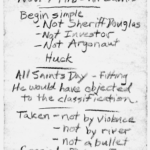 Begin simple
- Not Sheriff Douglas
- Not Investor
- Not Argonaut
Huck
All Saints Day - fitting
He would have objected
to the classification.
Taken - not by violence
- not by river
- not a bullet